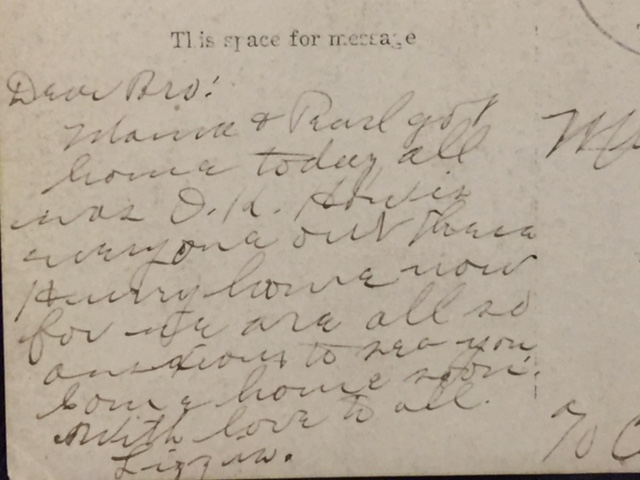 This space for message
Dear Bro:
Mama & Pearl got
home today all
was O.K. How is
everyone out there
Hurry home now
for we are all so
anxious to see you
Come home soon.
With love to all.
Lizzie.